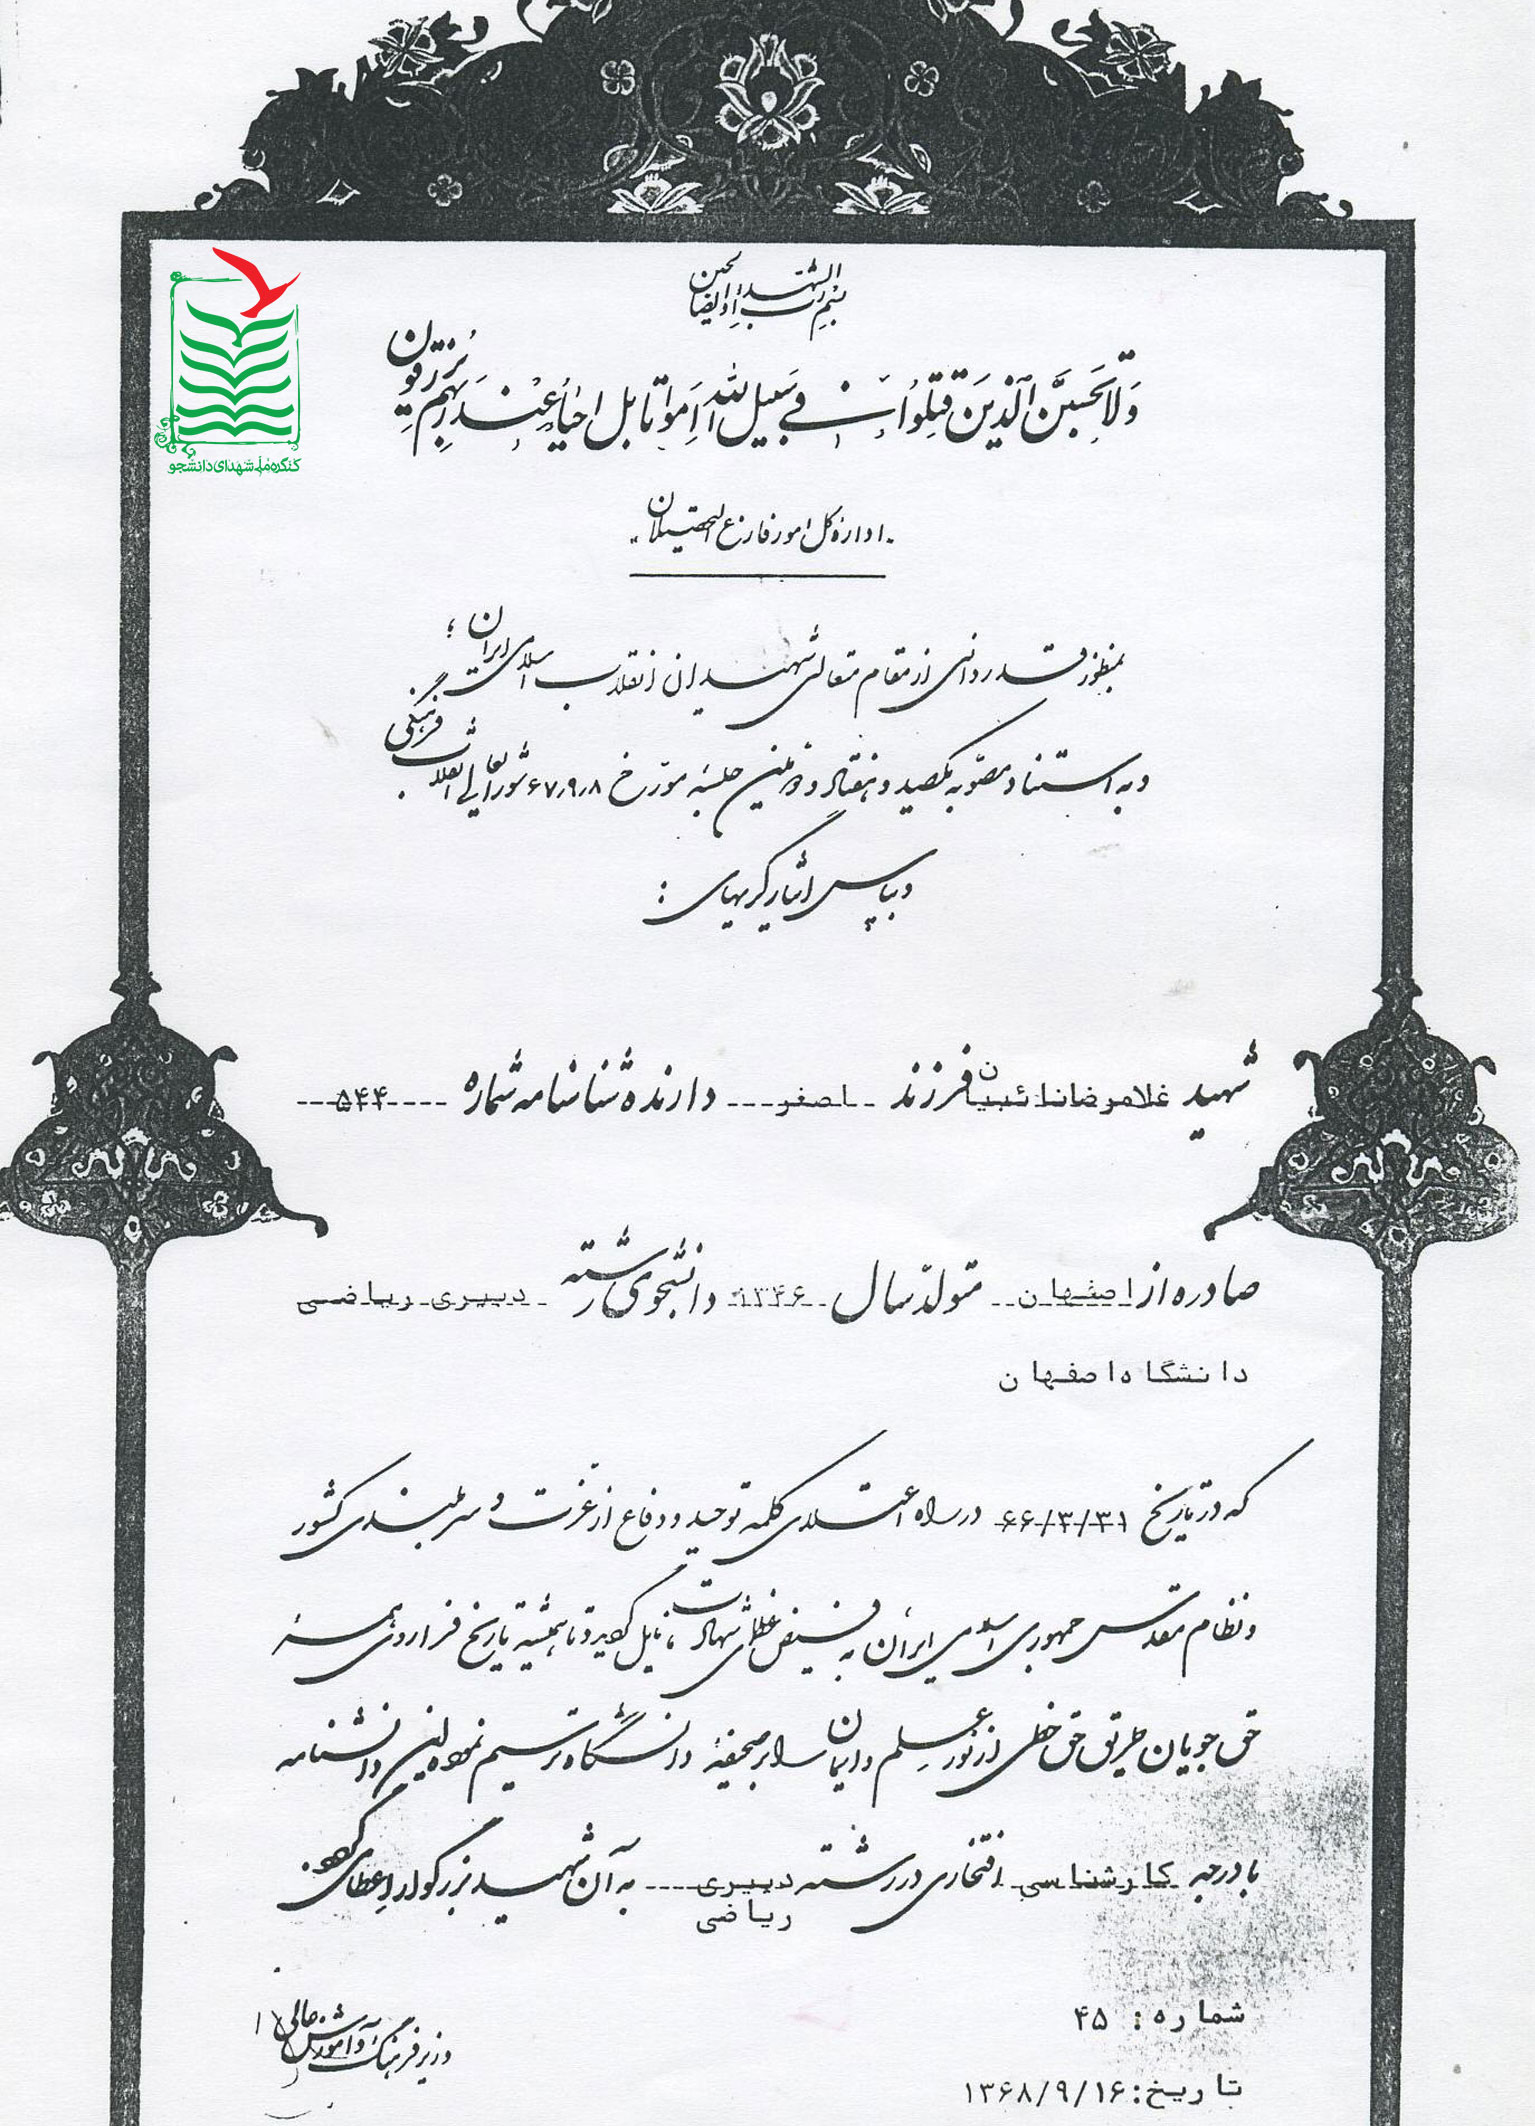 بسم رب الشهداء والصالحین
ولا تحسبن الذین قتلوا فی سبیل الله امواتا بل احیاء عند ربهم یرزقون
کنگره ملی شهدای دانشجو
اداره کل امور فارغ التحصیلان
بمنظور قدردانی از مقام متعالی شهیدان انقلاب اسلامی ایران؛
و به استناد مصوبه یکصد و هفتاد و دومین جلسه مورخ ۶۷٫۹٫۸ شورایعالی انقلاب فرهنگی
و بپاس ایثارگریهای :
شهید غلامرضانائبیان فرزند اصغر دارنده شناسنامه شماره ۵۴۴
صادره از اصفهان متولد سال ۱۳۴۶ دانشجوی رشته دبیری ریاضی
دانشگاه اصفهان
که در تاریخ ۶۶/۳/۳۱ در راه اعتلای کلمه توحید و دفاع از عزت و سربلندی کشور
و نظام مقدس جمهوری اسلامی ایران به فیض عظمای شهادت نایل گردید و تا همیشه تاریخ فراروی همه
حق جویان طریق حق خطی از نور علم و ایمان را بر صحیفه دانشگاه ترسیم نموده این دانشنامه
با درجه کارشناسی افتخاری در رشته دبیری ریاضی به آن شهید بزرگوار اعطا می گردد.
شماره: ۴۵
تاریخ: ۱۳۶۸/۹/۱۶
وزیر فرهنگ و آموزش عالی